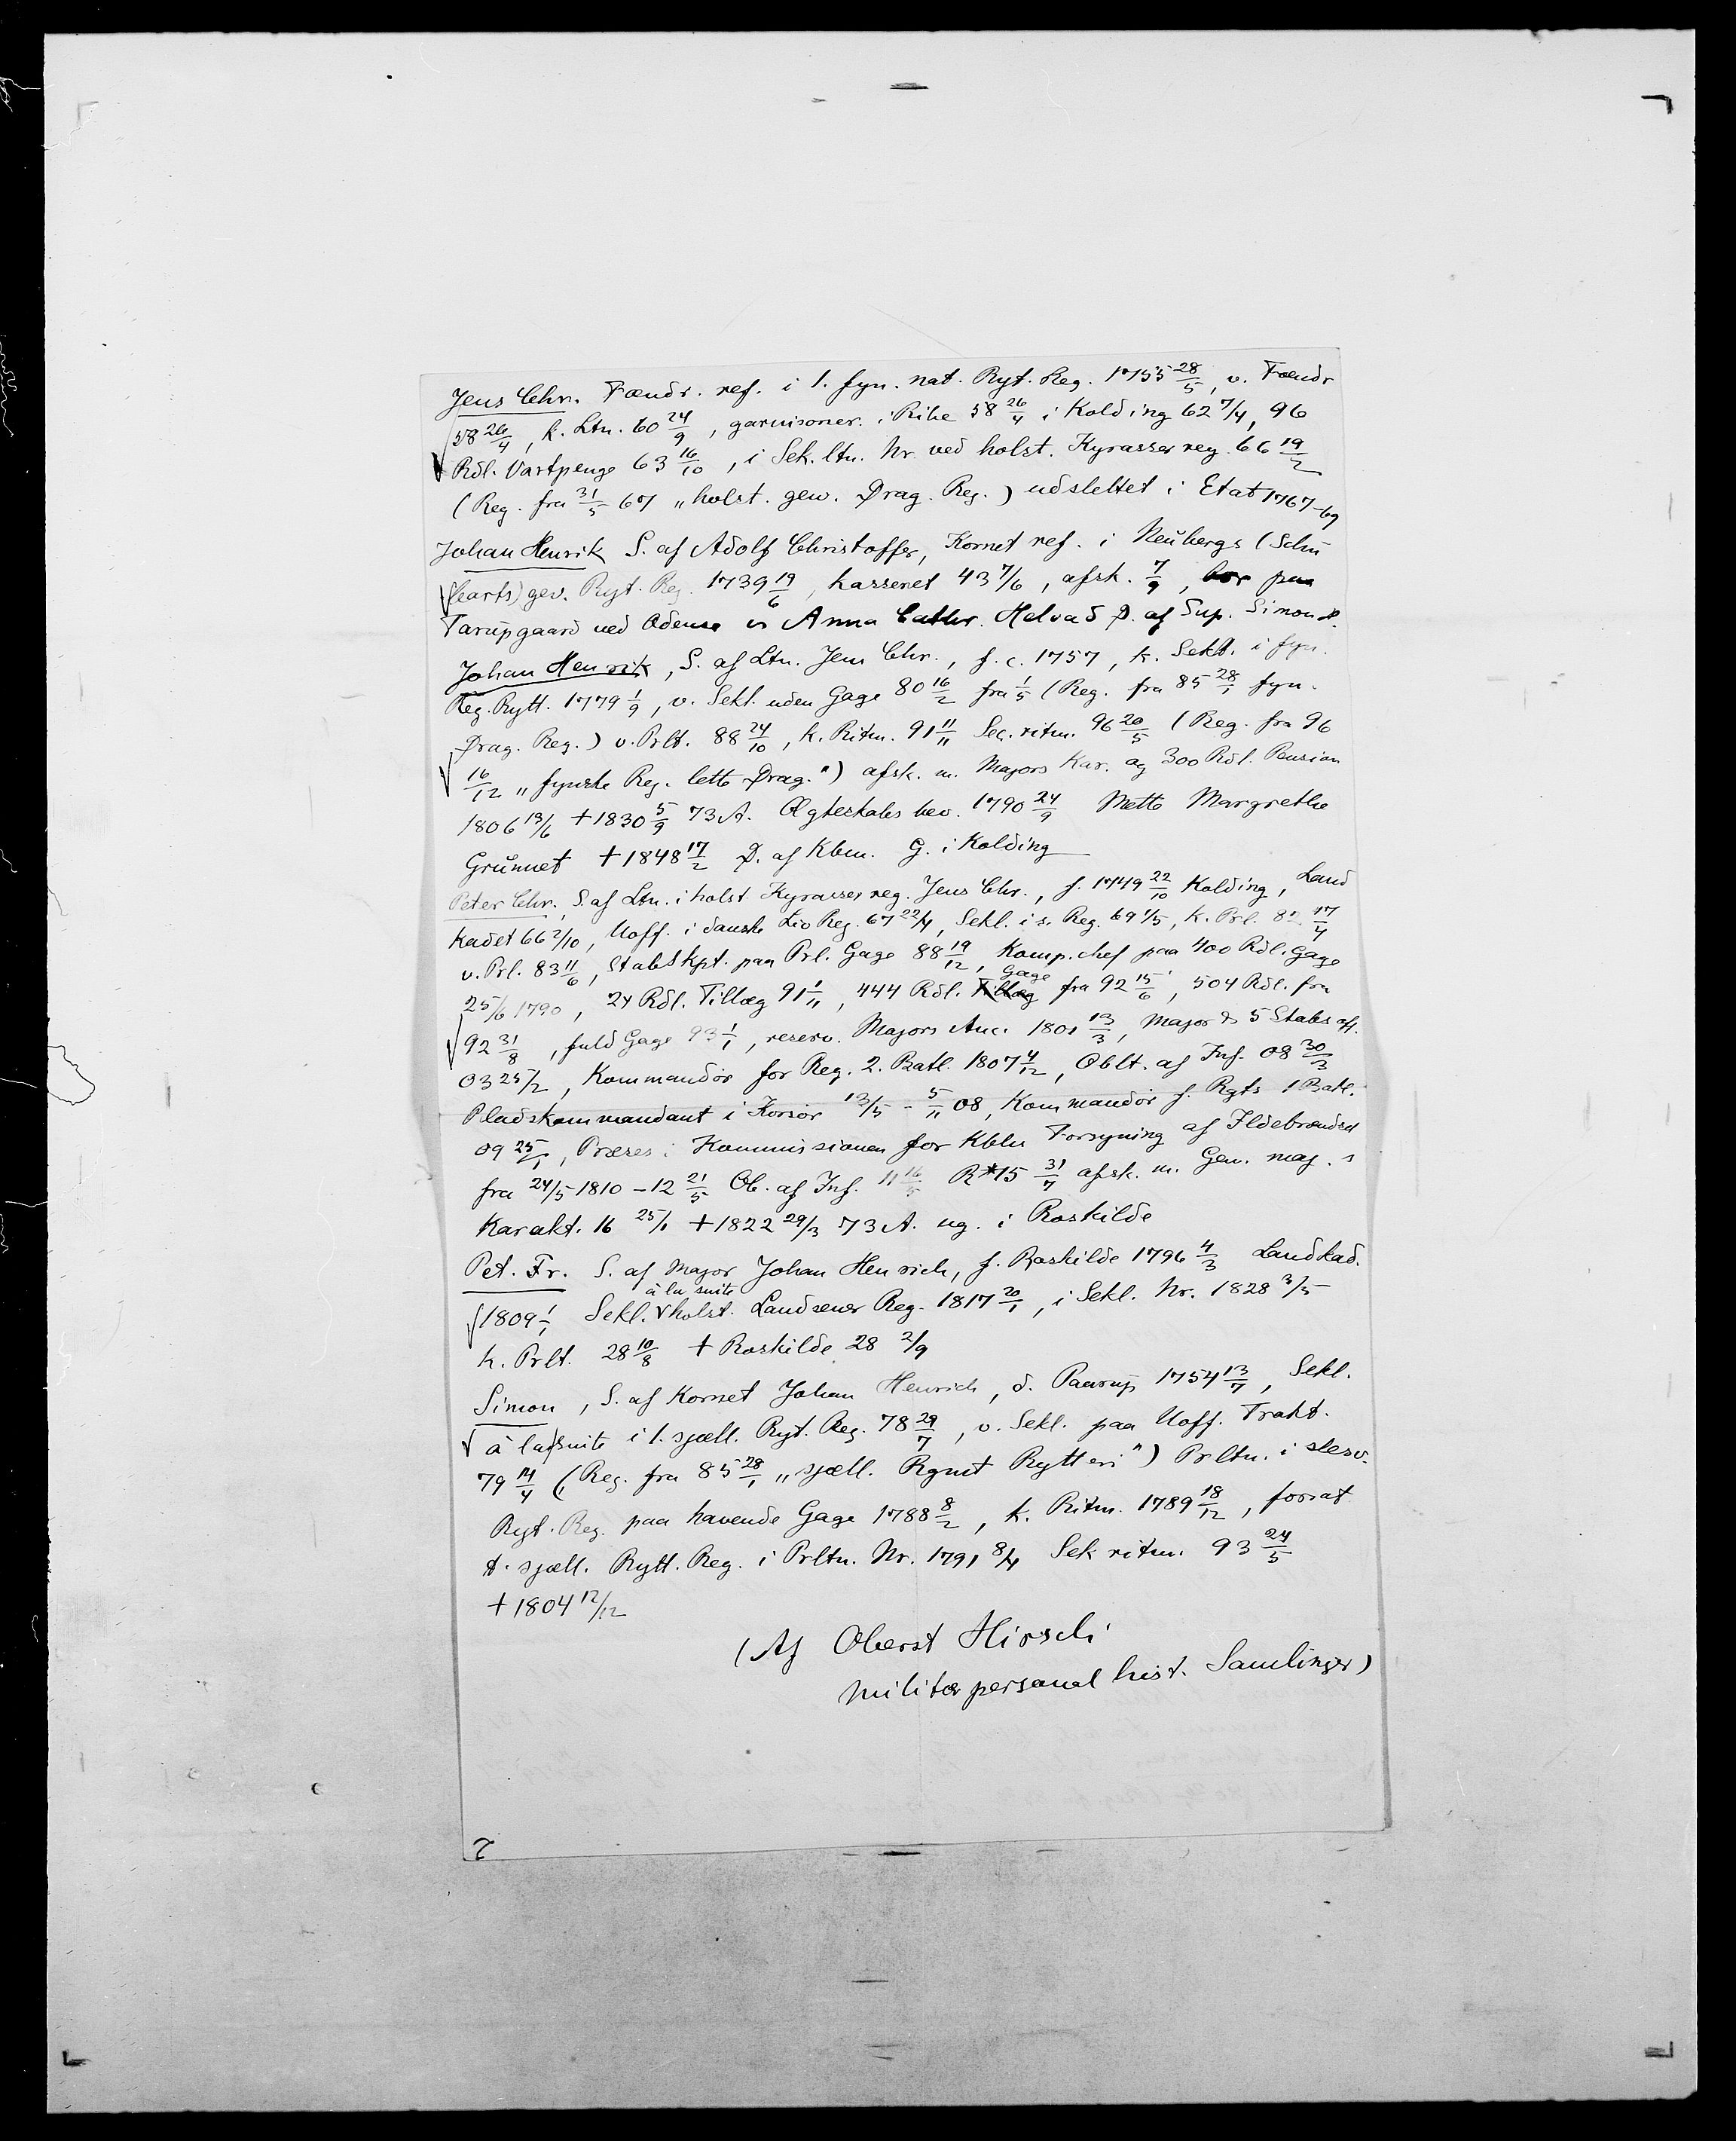 Jens Chr. Fændr. ref. i 1. fyn. nat. Ryt. Reg. 1755 28/5, v. Fændr
58 26/4, k. Ltn. 60 24/9, garnisoner. i Ribe 58 26/4 i Kolding 62 7/4, 96
Rdl. Vartpenge 63 16/10, i Sek. ltn. Nr. ved holst. Kyrasser reg. 66 19/2
(Reg. fra 31/5 67 „holst. gev. Drag. Reg.) udslettet i Etat 1767-69
Johan Henrik S. af Adolf Christoffer, Kornet ref. i Neubergs (Schu
barts) gev. Ryt. Reg. 1739 19/6, kasseret 43 7/6, afsk. 7/9, bor paa
Tarupgaard ved Odense Anna Cathr. Helvad D. af Sup. Simon
Johan Henrik, S. af Ltn. Jens Chr., f. c. 1757, k. Sekl. i fyn.
Reg. Rytt. 1779 1/9, v. Sekl. uden Gage 80 16/2 fra 1/5 (Reg. fra 85 28/1 fyn.
Drag. Reg.) v. Prlt. 88 24/10, k. Ritm. 91 11/11 Sec. ritm. 96 20/5 (Reg. fra 96
16/12 „fynske Reg. lette Drag.") afsk. m. Majors Kar. og 300 Rdl. Pension
1806 13/6 †1830 5/9 73 A. Ægteskabs bev. 1790 24/9 Mette Margrethe
Grünnet †1848 17/2 D. af Kbm. G. i Kolding
Peter Chr., S. af Ltn. i holst Kyrasser reg. Jens Chr., f. 1749 22/10 Kolding, Land
kadet 66 2/10, Uoff. i danske Liv Reg. 67 22/4, Sekl. i s. Reg. 69 1/5, k. Prl. 17/4
v. Prl. 83 11/6, Stabskpt. paa Prl. Gage 88 19/12, Komp. chef paa 400 Rdl. Gage
25/6 1790, 24 Rdl. Tillæg 91 1/11, 444 Rdl. Gage fra 92 15/6, 504 Rdl. fra
92 31/8, fuld Gage 93 1/1, reserv. Majors Anc. 1801 13/3, Major & 5 Stabs off.
03 25/2, Kommandör for Reg. 2. Batl. 1807 4/12, Oblt. af Inf. 08 30/3
Pladskommandant i Korsör 13/5 - 5/11 08, Kommandör f. Rgts 1 Batl.
09 25/1, Præses i Kommissionen for Kbhs Forsyning af Ildebrændsel
fra 24/5 1810 - 12 21/5 Ob. af Inf. 11 16/5 R* 15 31/7 afsk. m. Gen. maj. s
Karakt. 16 25/1 †1822 29/3 73 A. ug. i Roskilde
Pet. Fr. S. af Major Johan Henrich, f. Roskilde 1796 4/3 Landkad.
1809 1/1 Sekl. à la suite v holst. Landsener Reg. 1817 20/1, i Sekl. Nr. 1828 3/5
k. Prlt. 28 10/8 † Roskilde 28 2/9
Simon, S. af Kornet Johan Henrich, d. Paarup 1754 13/7, Sekl.
à la suite i 1. sjæll. Ryt. Reg. 78 29/7, v. Sekl. paa Uoff. Trakt.
79 14/4 (Reg. fra 85 28/1 „sjæll. Rgmt Rytteri") Prltn. i slesv.
Ryt. Reg. paa havende Gage 1788 8/2, k. Ritm. 1789 18/12, forsat
t. sjæll. Rytt. Reg. i Prltn. Nr. 1791 8/4 Sek ritm. 93 24/5
†1804 12/12
(Af Oberst Hirsch
militær personal hist. Samlinger)